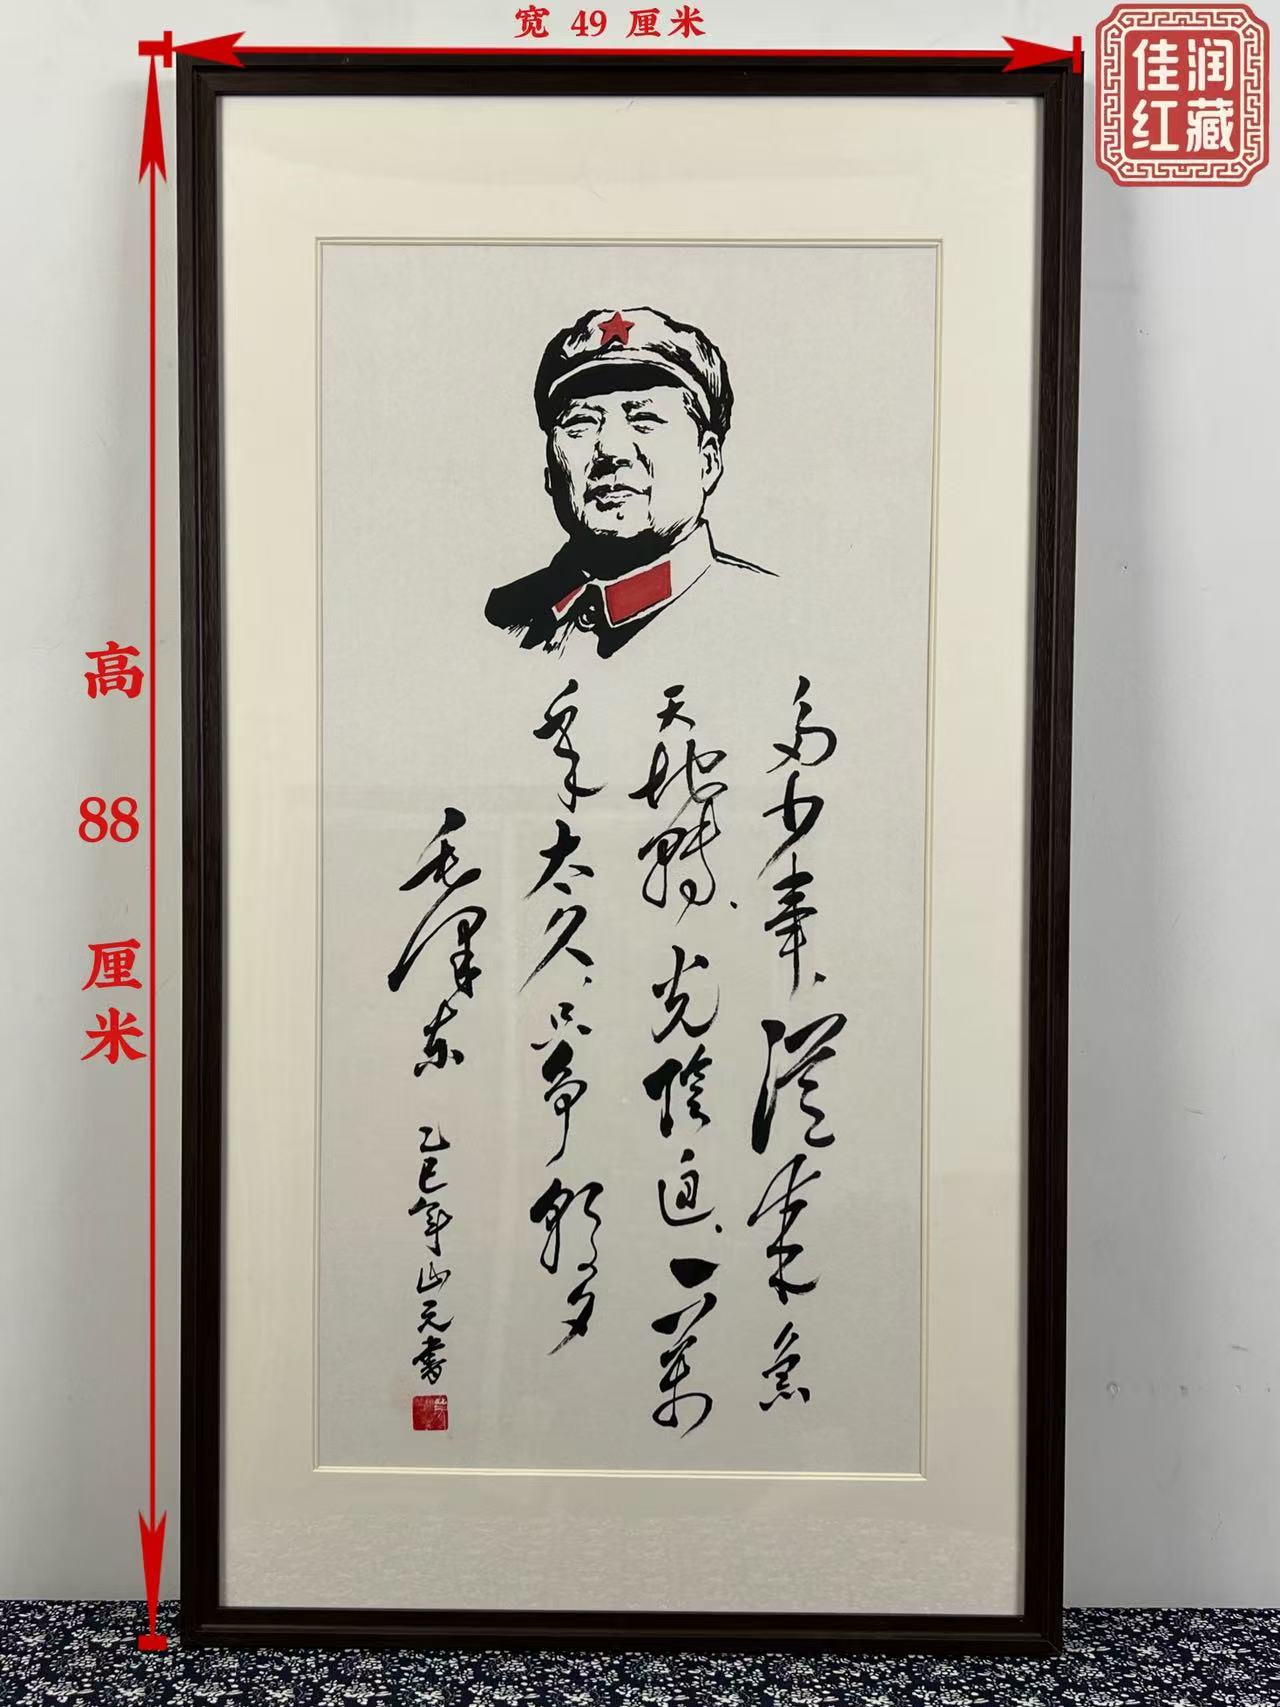 宽 49 厘米
佳润
红藏
高 88 厘米
多少事、从来急
天地转、光阴迫、一万
年太久、只争朝夕
毛泽东 乙巳年山元书